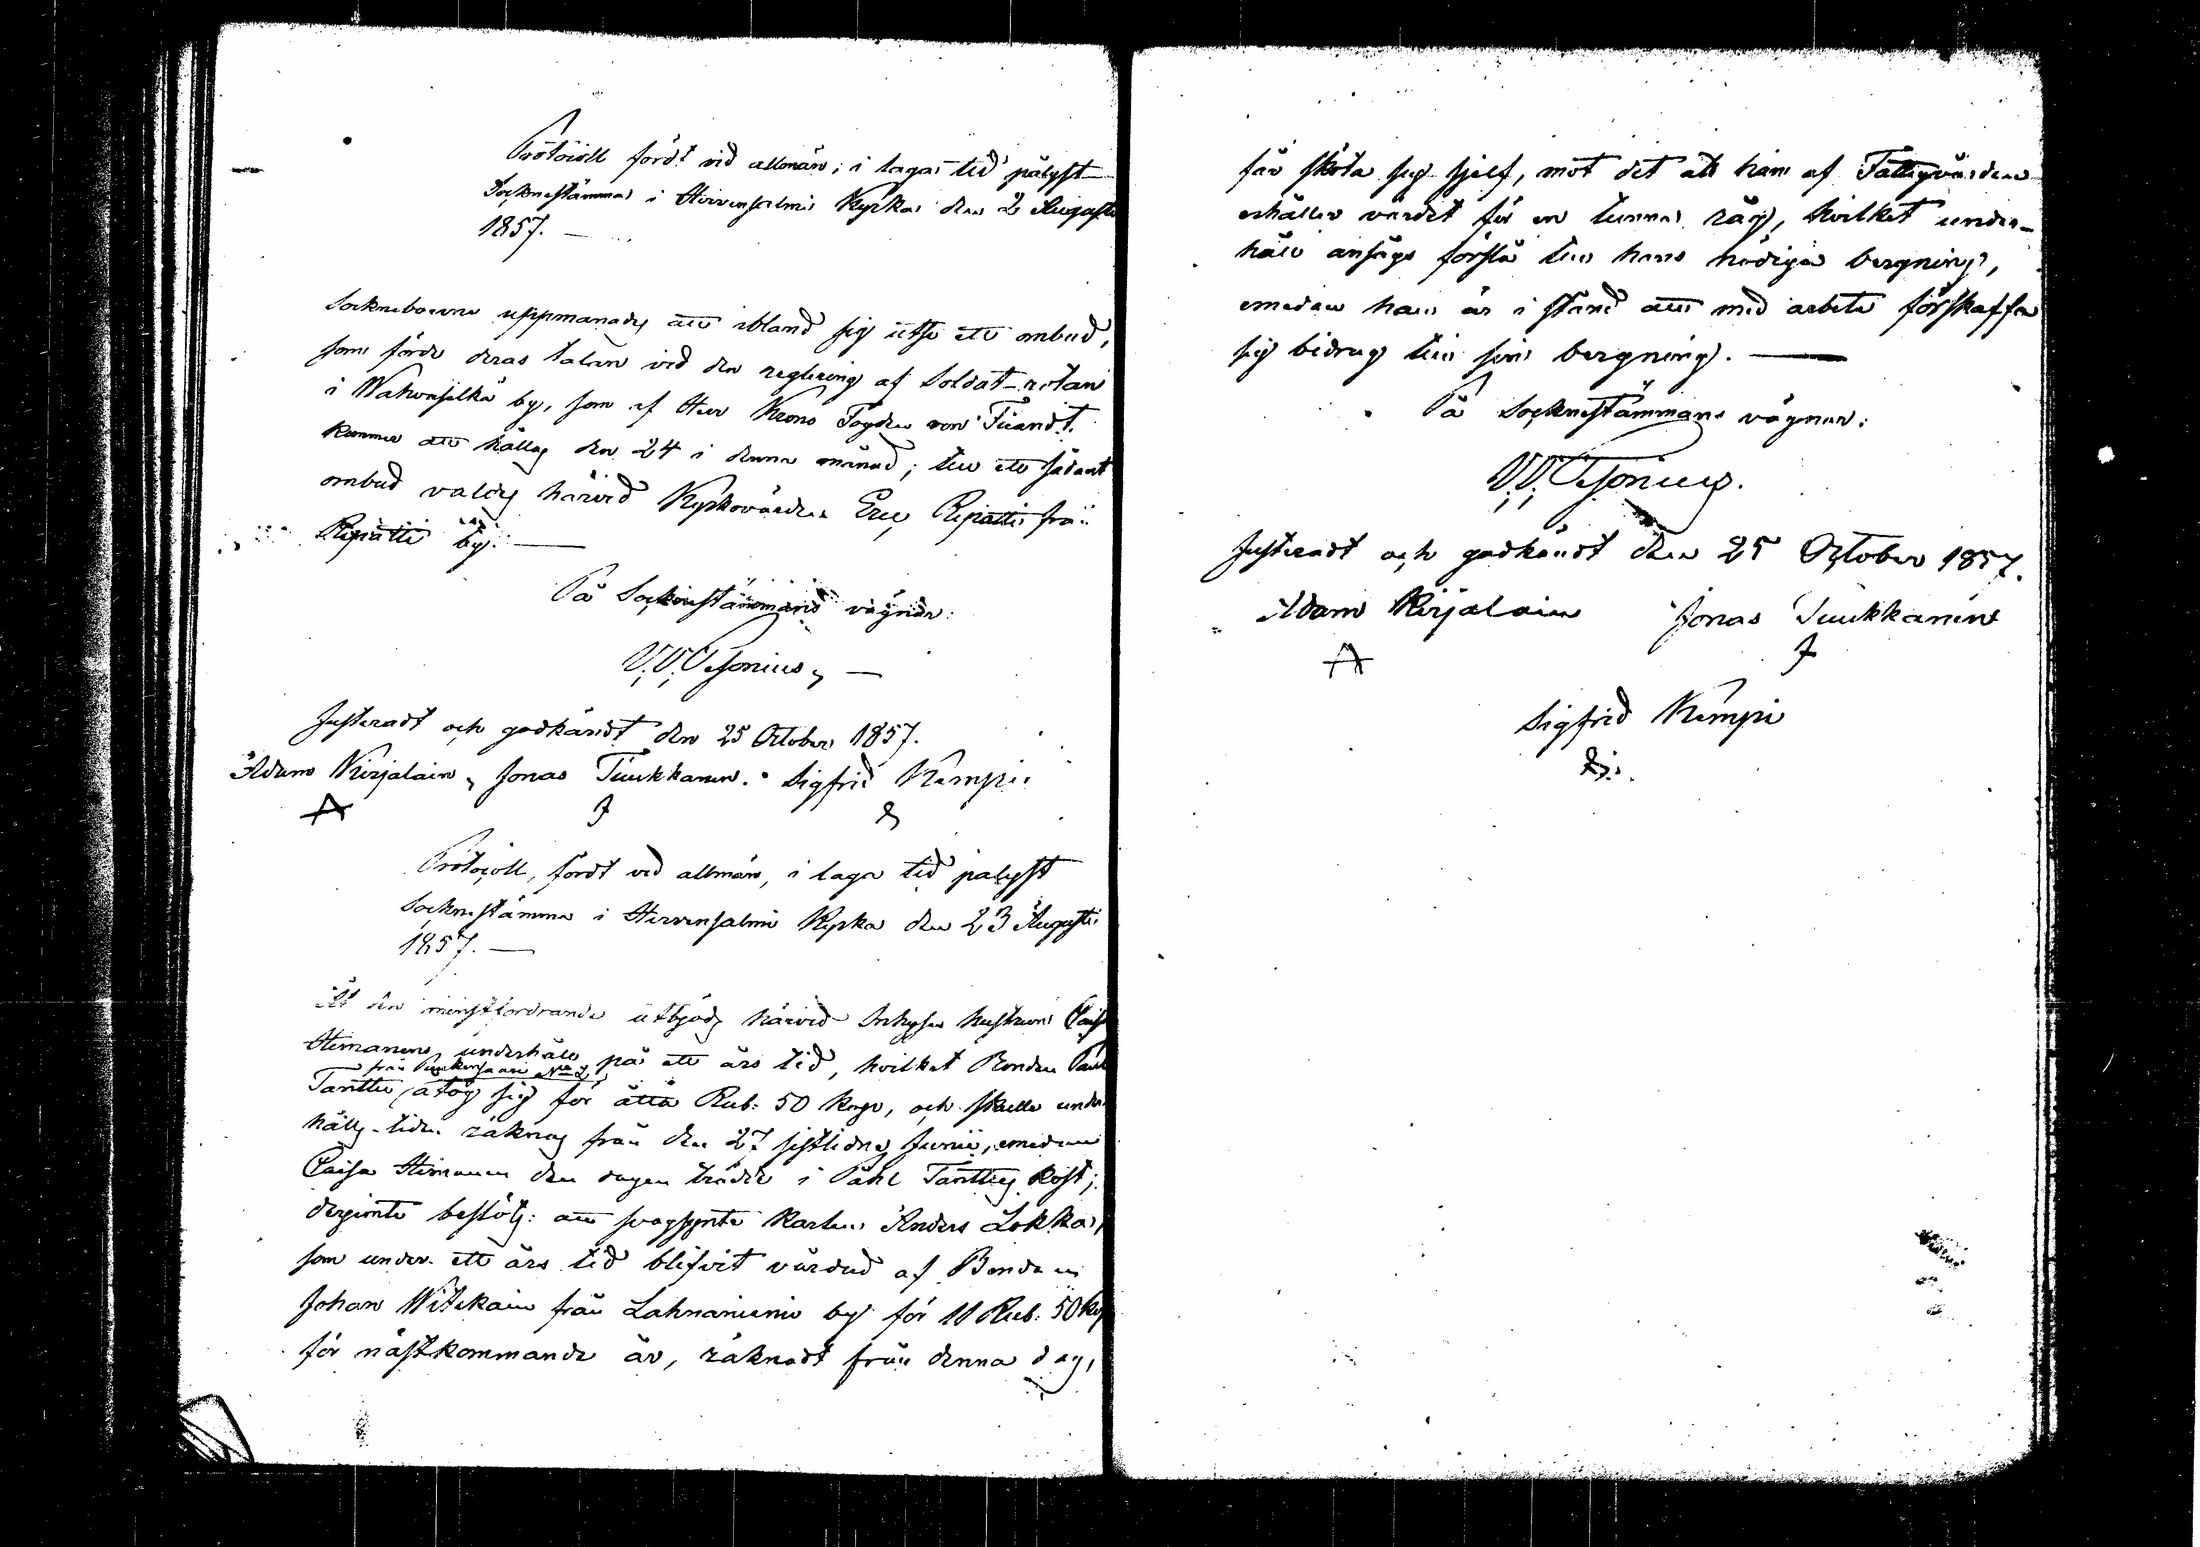 Protocoll fördt vid allmän, i laga tid pålyst
Socknestämma i Hirvensalmi Kyrka den 2 Augusti
1857. —
Sockneboerne uppmanades att ibland sig utse ett ombud,
som förde deras talan vid den reglering af Soldat-rotan
i Wahvaselkä by, som af Herr Krono Fogden von Fieandt
kommer att hållas den 24 i denna månad; till ett sådant
ombud valdes härvid Kyrkovärden Eric Ripatti från
Ripatti by. —
På Socknestämmans vägnar:
V. V. Pesonius, —
Justeradt och godkändt den 25 October 1857.
Adam Kirjalain, Jonas Tuukkanen. Sigfrid Kämpi
A J S
Protocoll, fördt vid allmän, i laga tid pålyst
Socknestämma i Hirvensalmi Kyrka den 23 Augusti
1857. —
Åt den minstfordrande utbjöds härvid Inhyses hustrun Caisa
Himanens underhåll på ett års tid, hvilket Bonden Påhl
från Puukonsaari No 2
Tanttu åtog sig för åtta Rub: 50 kop, och skulle under-
hålls-tiden räknas från den 27 sistlidne Junii, emedan
Caisa Himanen den dagen trädde i Påhl Tanttus kost;
derjemte beslöts: att svagsynte karlen Anders Lokka,
som under ett års tid blifvit vårdad af Bonden
Johan Witikain från Lahnaniemi by för 11 Rub: 50 kop
för nästkommande år, räknadt från denna dag,
får sköta sig sjelf, mot det att han af Fattigvården
erhåller värdet för en tunna råg, hvilket under-
håll ansågs förslå till hans nödiga bergning,
emedan han är i stånd att med arbete förskaffa
sig bidrag till sin bergning. —
På Socknestämmans vägnar:
V. V. Pesonius.
Justeradt och godkändt den 25 October 1857.
Adam Kirjalain Jonas Tuukkanen
A J
Sigfrid Kämpi
S